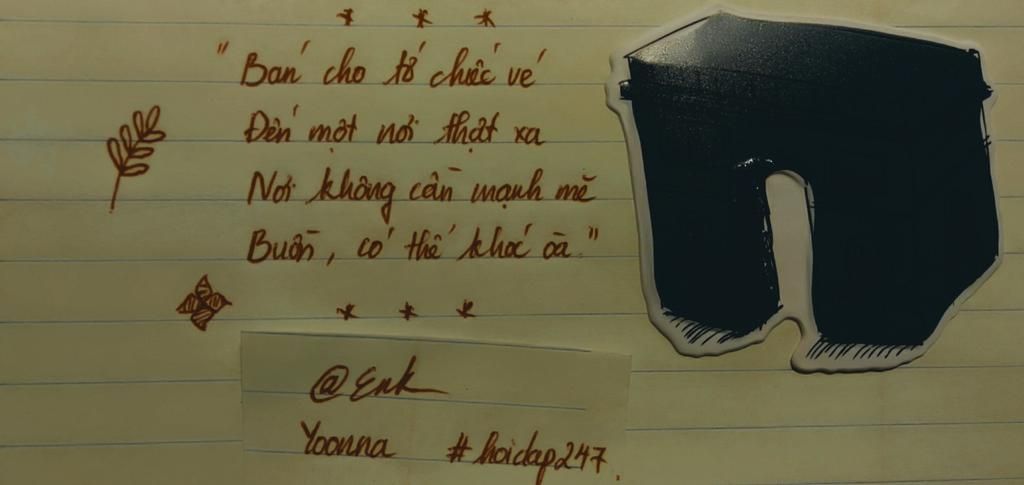 * * *
"Bán cho tớ chiếc vé
Đến một nơi thật xa
Nơi không cần mạnh mẽ
Buồn, có thể khóc oà."
* * *
@Enk
Yoonna #hoidap247.